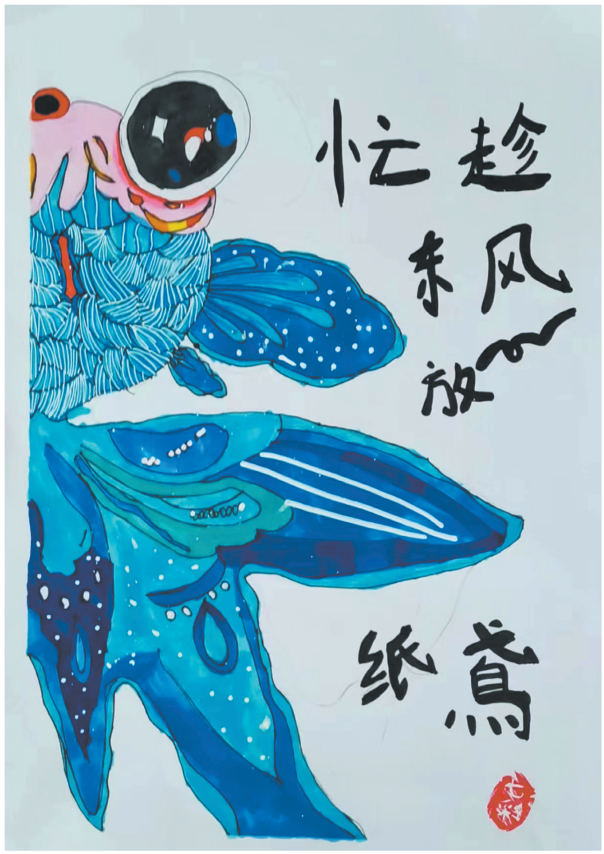 忙趁
东风
放
纸鸢